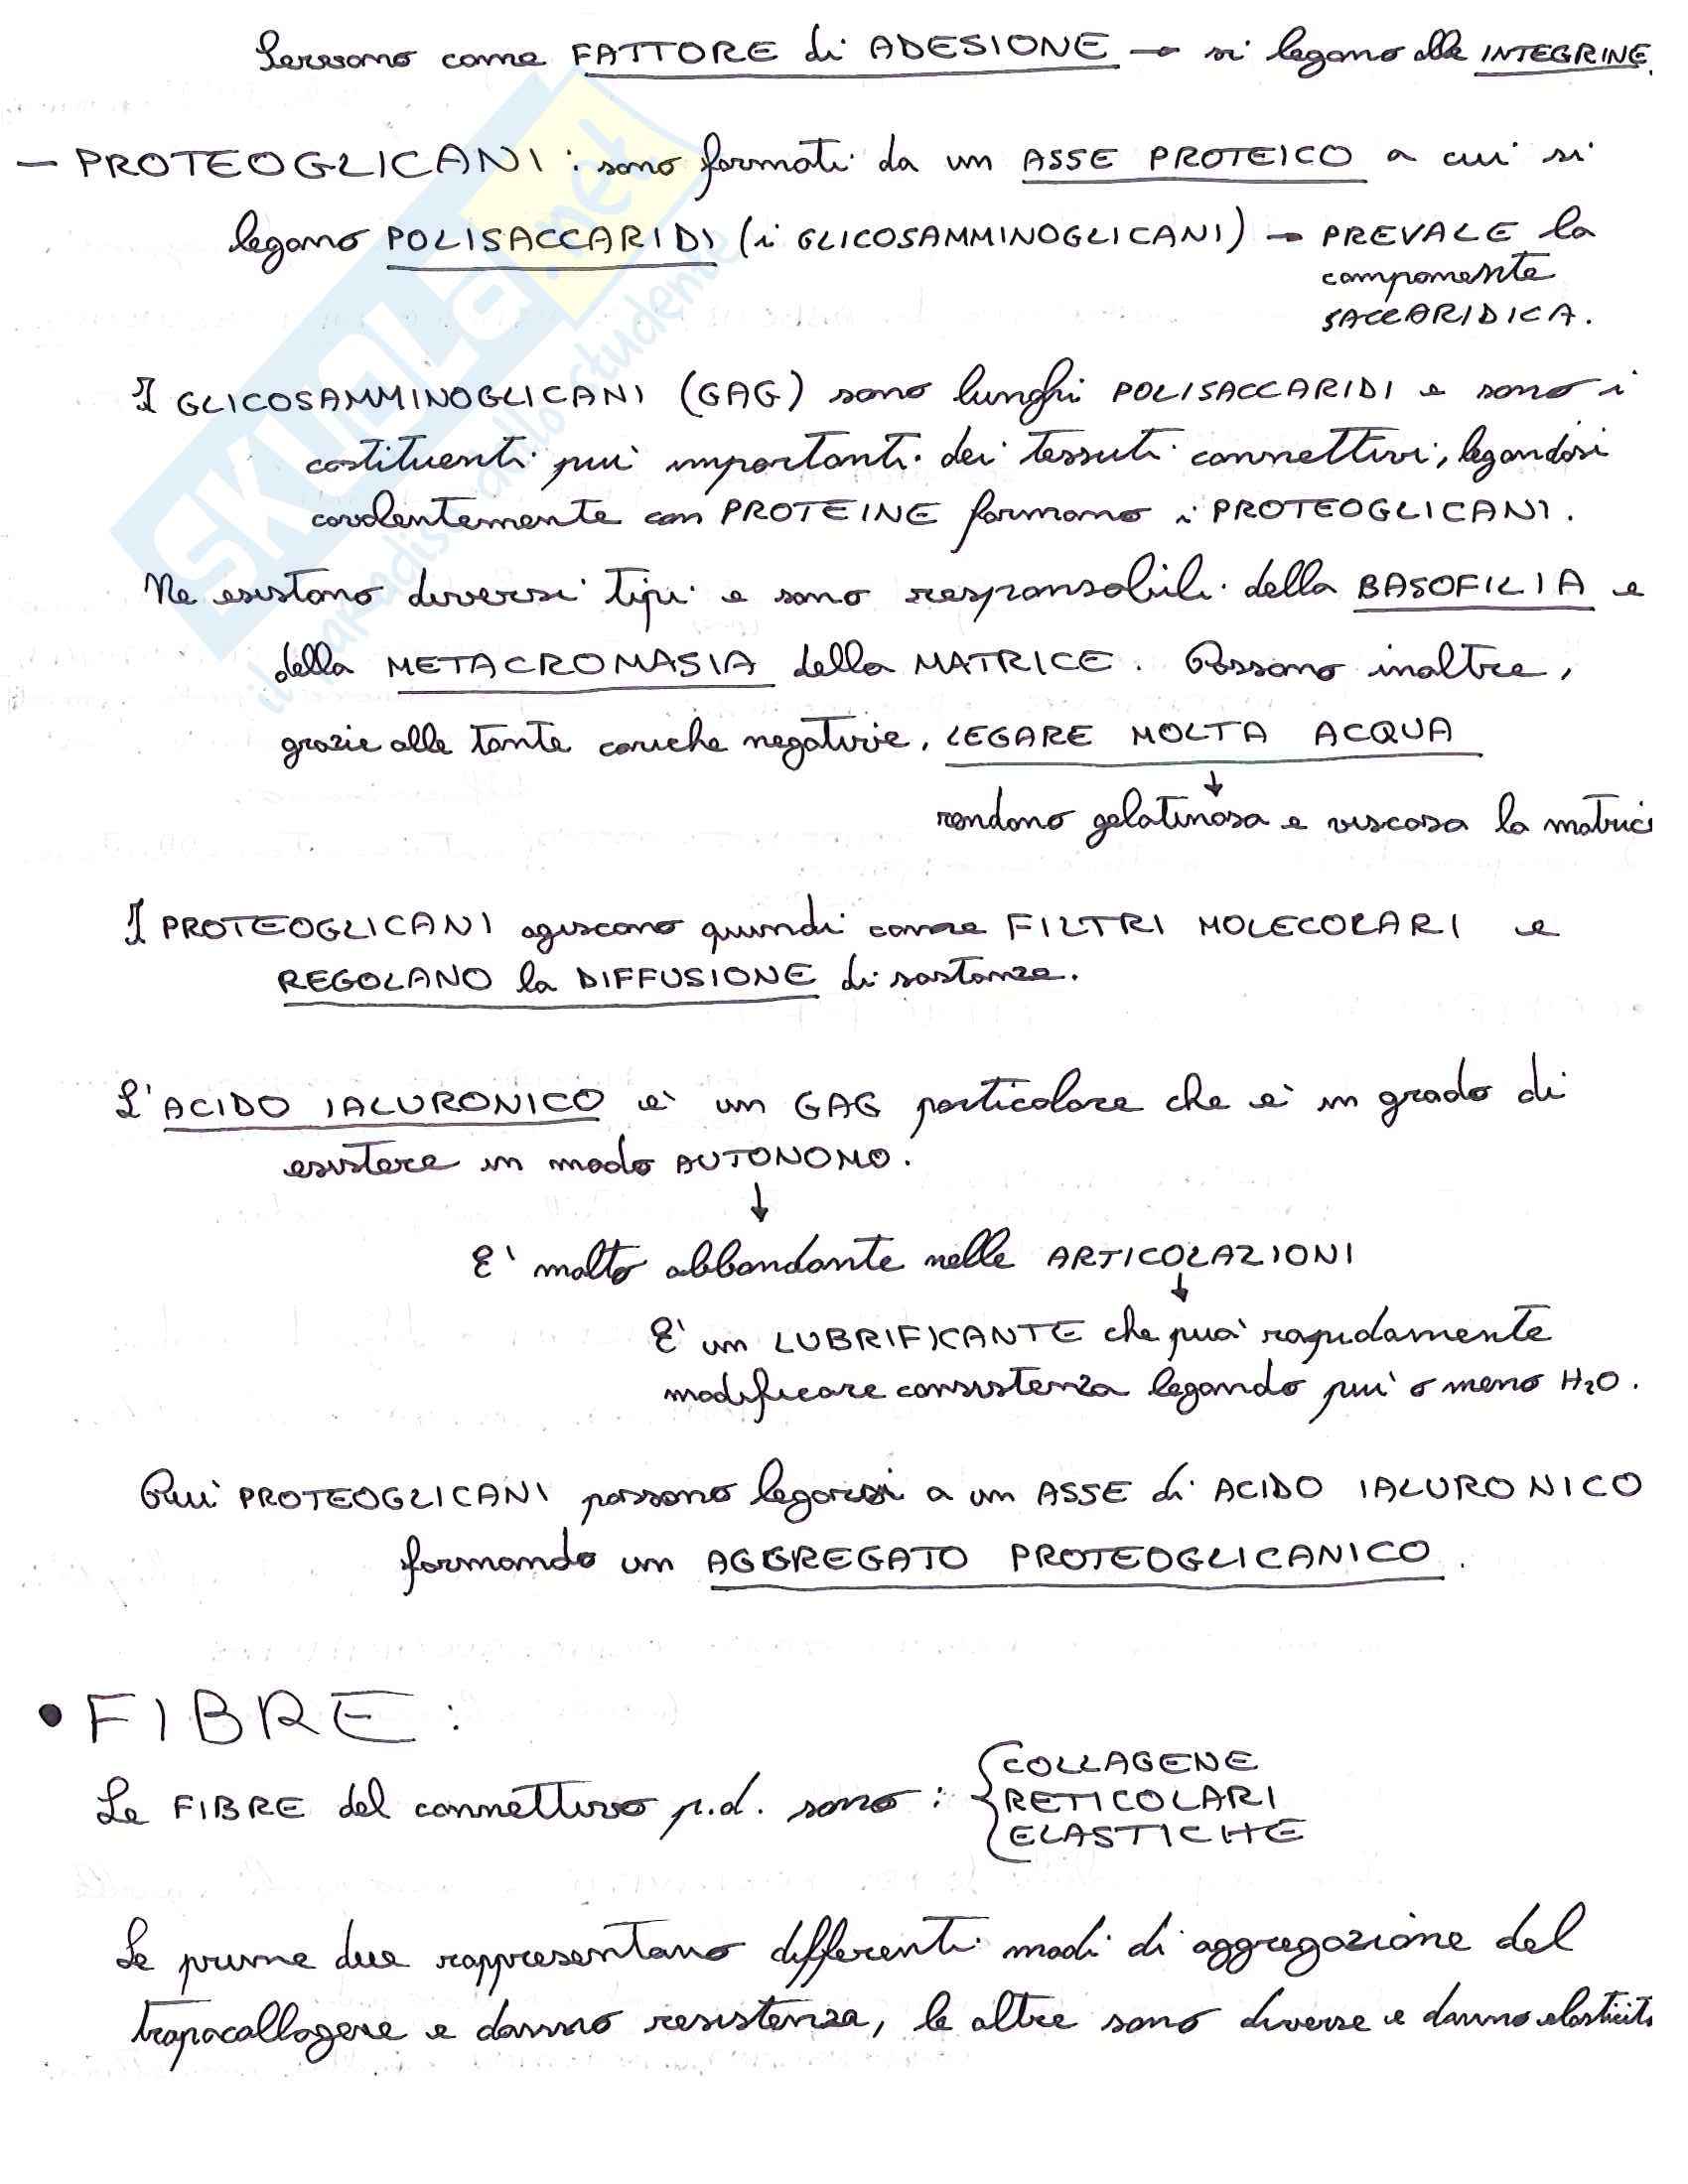 Servono come FATTORE di ADESIONE → si legano alle INTEGRINE.
- PROTEOGLICANI : sono formati da un ASSE PROTEICO a cui si
legano POLISACCARIDI (i GLICOSAMMINOGLICANI) → PREVALE la
componente
SACCARIDICA.
I GLICOSAMMINOGLICANI (GAG) sono lunghi POLISACCARIDI e sono i
costituenti più importanti dei tessuti connettivi, legandosi
covalentemente con PROTEINE formano i PROTEOGLICANI.
Ne esistono diversi tipi e sono responsabili della BASOFILIA e
della METACROMASIA della MATRICE. Possono inoltre,
grazie alle tante cariche negative, LEGARE MOLTA ACQUA
↓
rendono gelatinosa e viscosa la matrice
I PROTEOGLICANI agiscono quindi come FILTRI MOLECOLARI e
REGOLANO la DIFFUSIONE di sostanze.
L'ACIDO IALURONICO è un GAG particolare che è in grado di
esistere in modo AUTONOMO.
↓
E' molto abbondante nelle ARTICOLAZIONI
↓
E' un LUBRIFICANTE che può rapidamente
modificare consistenza legando più o meno H₂O.
Più PROTEOGLICANI possono legarsi a un ASSE di ACIDO IALURONICO
formando un AGGREGATO PROTEOGLICANICO.
• FIBRE :
Le FIBRE del connettivo p.d. sono : { COLLAGENE
RETICOLARI
ELASTICHE
Le prime due rappresentano differenti modi di aggregazione del
tropocollagene e danno resistenza, le altre sono diverse e danno elasticità
SKUOLA.net
il paradiso dello studente